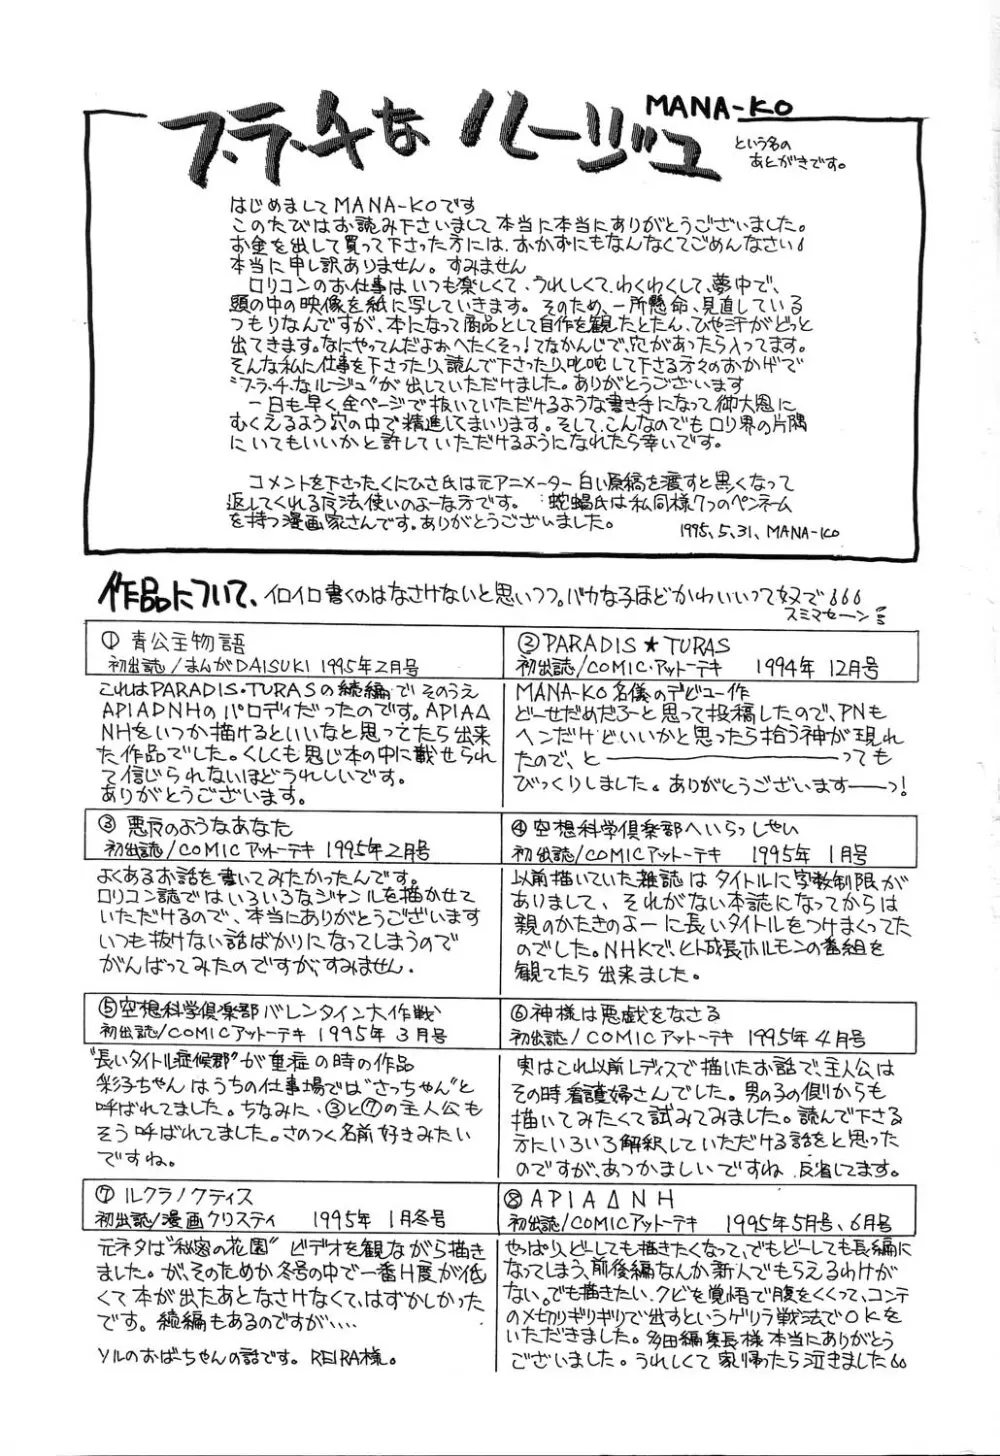 MANA-KO
フ・ラ・チなルージュ
という名の
あとがきです。
はじめましてMANA-KOです
このたびはお読み下さいまして本当に本当にありがとうございました。
お金を出して買って下さった方には、おかずにもなんなくてごめんなさい
本当に申し訳ありません。すみません
ロリコンのお仕事はいつも楽しくて、うれしくて、わくわくして、夢中で、
頭の中の映像を紙に写していきます。そのため、一所懸命、見直している
つもりなんですが、本になって商品として自作を観たとたん、ひや汗がどっと
出てきます。なにやってんだよぉへたくそっ!てなかんじで、穴があったら入ってます。
そんな私に仕事を下さったり、読んで下さったり、叱咤して下さる方々のおかげで
"フ・ラ・チ・なルージュ"が出していただけました。ありがとうございます
一日も早く全ページで抜いていただけるような書き手になって御大恩に
むくえるよう穴の中で精進してまいります。そして、こんなのでもロリ界の片隅
にいてもいいかと許していただけるようになれたら幸いです。
コメントを下さった、くにひさ氏は元アニメーター白い原稿を渡すと黒くなって
返してくれる魔法使いのよーな方です。蛇蝎氏は私同様7つのペンネーム
を持つ漫画家さんです。ありがとうございました。
1995.5.31. MANA-KO
作品について、イロイロ書くのはなさけないと思いつつ。バカな子ほどかわいいって奴で
スミマセーン
① 青公主物語
初出誌/まんがDAISUKI 1995年2月号
これはPARADIS・TURASの続編でそのうえ
APIAΔNHのパロディだったのです。APIAΔ
NHをいつか描けるといいなと思ってたら出来
た作品でした。くしくも同じ本の中に載せられ
て信じられないほどうれしいです。
ありがとうございます。
② PARADIS★TURAS
初出誌/COMIC・アットーテキ 1994年12月号
MANA-KO名儀のデビュー作
どーせだめだろーと思って投稿したので、PNも
ヘンだけどいいかと思ったら拾う神が現れ
たので、と――――――っても
びっくりしました。ありがとうございますーーっ!
③ 悪夜のようなあなた
初出誌/COMICアットーテキ 1995年2月号
よくあるお話を書いてみたかったんです。
ロリコン誌ではいろいろなジャンルを描かせて
いただけるので、本当にありがとうございます
いつも抜けない話ばかりになってしまうので
がんばってみたのですが、すみません.
④ 空想科学倶楽部へいらっしゃい
初出誌/COMICアットーテキ 1995年1月号
以前描いていた雑誌はタイトルに字数制限が
ありまして、それがない本誌になってからは
親のかたきのよーに長いタイトルをつけまくってた
のでした。NHKで、ヒト成長ホルモンの番組を
観てたら出来ました。
⑤ 空想科学倶楽部バレンタイン大作戦
初出誌/COMICアットーテキ 1995年3月号
"長いタイトル症候群"が重症の時の作品
彩子ちゃんはうちの仕事場では"さっちゃん"と
呼ばれてました。ちなみに、③と⑦の主人公も
そう呼ばれてました。さのつく名前好きみたい
ですね。
⑥ 神様は悪戯をなさる
初出誌/COMICアットーテキ 1995年4月号
実はこれ以前レディスで描いたお話で、主人公は
その時看護婦さんでした。男の子の側からも
描いてみたくて試みてみました。読んで下さる
方にいろいろ解釈していただける話をと思った
のですが、あつかましいですね 反省してます。
⑦ ルクラノクティス
初出誌/漫画クリスティ 1995年1月冬号
元ネタは"秘密の花園" ビデオを観ながら描き
ました。が、そのためか冬号の中で一番H度が低
くて本が出たあとなさけなくて、はずかしかった
です。続編もあるのですが・・・・
ソルのおばーちゃんの話です。REIRA様。
⑧ APIAΔNH
初出誌/COMICアットーテキ 1995年5月号、6月号
やっぱり、どーしても描きたくなって、でもどーしても長編に
なってしまう、前後編なんか新人でもらえるわけが
ない。でも描きたい。クビを覚悟で腹をくくって、コンテ
のメ切りギリギリで出すというゲリラ戦法でOKを
いただきました。多田編集長様本当にありがとう
ございました。うれしくて家帰ったら泣きました